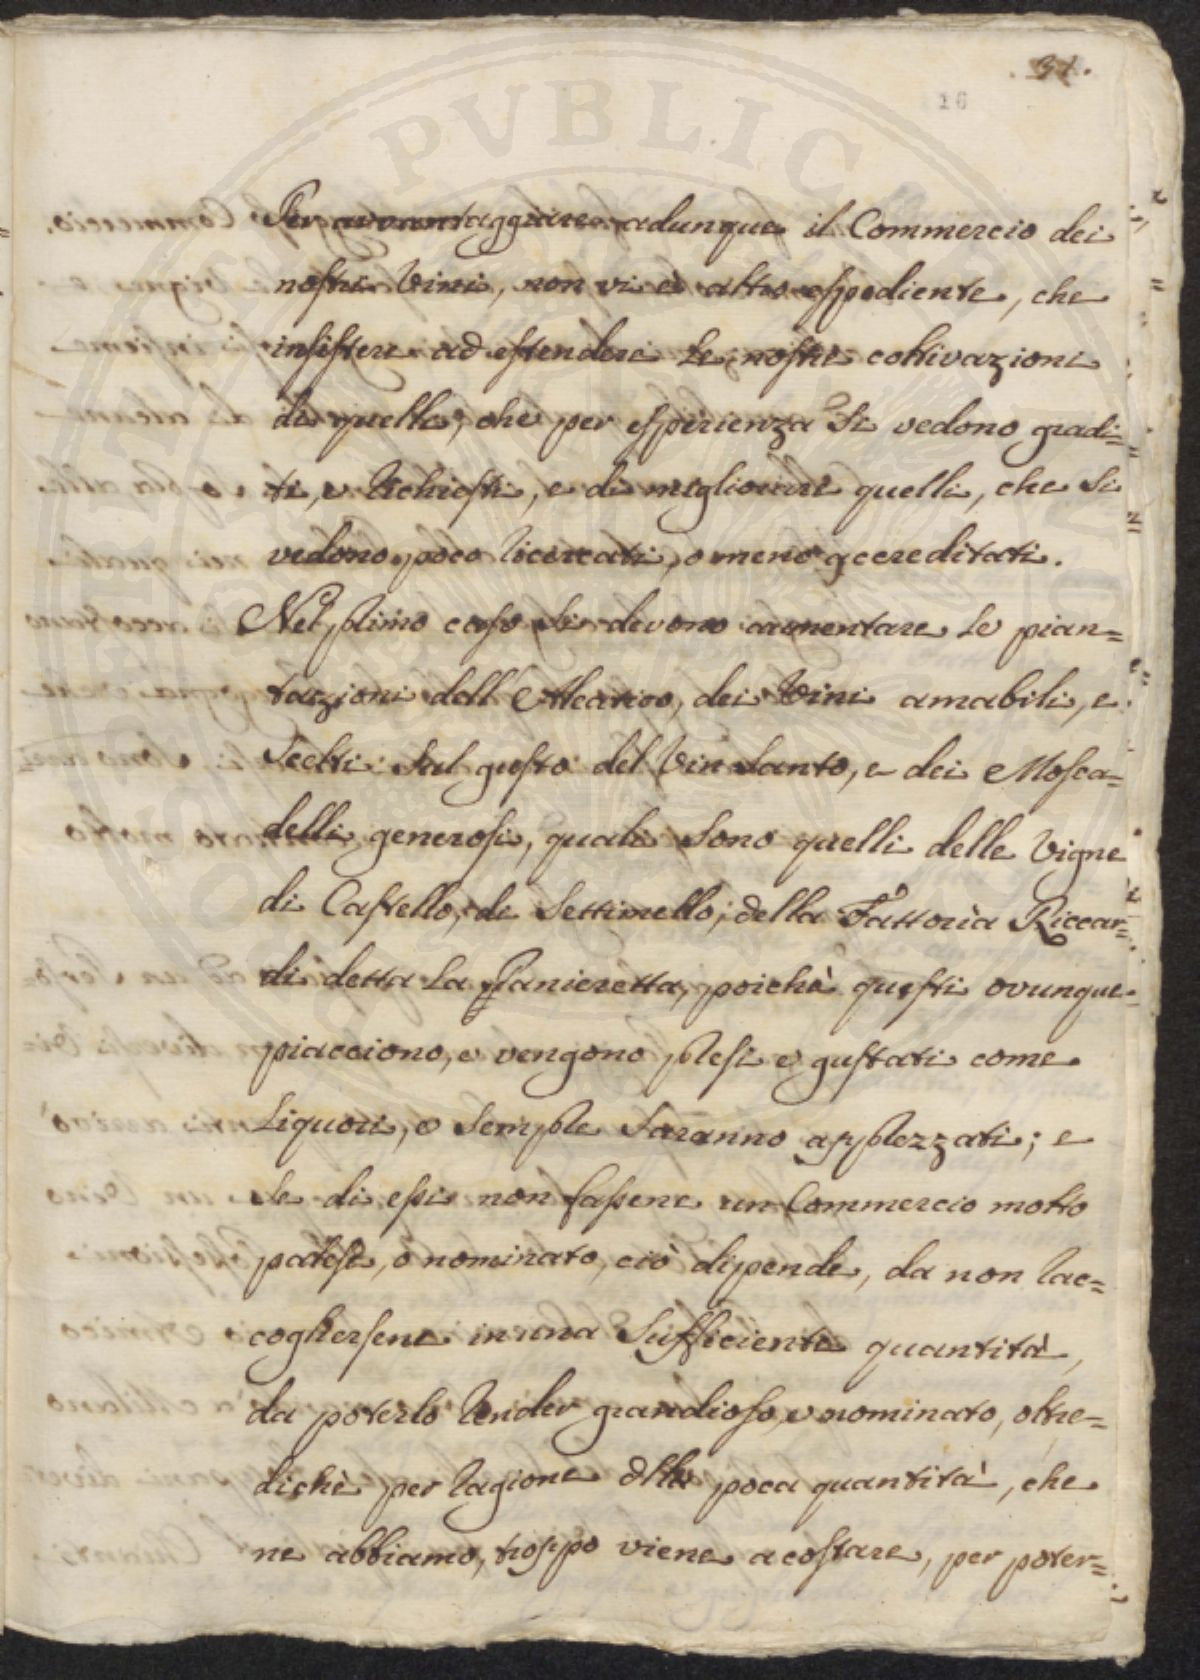 31.
16
Per avvantaggiare adunque il Commercio dei
nostri Vini, non vi è altro espediente, che
insistere ad estendere le nostre coltivazioni
di quelli, che per esperienza si vedono gradi=
ti, e richiesti, e di migliorare quelli, che si
vedono poco ricercati, o meno accreditati.
Nel primo caso si devono aumentare le pian=
tazioni dell'Aleatico, dei Vini amabili, e
scelti sul gusto del Vin Santo, e dei Mosca=
delli generosi, quali sono quelli delle Vigne
di Castello, di Settimello, della Fattorìa Riccar=
di detta la Panieretta, poichè questi ovunque
piacciono, e vengono presi e gustati come
Liquori, e sempre saranno apprezzati; e
se di essi non fassene un Commercio molto
palese, o nominato, ciò dipende, da non rac=
cogliersene in una sufficiente quantità,
da poterlo render grandioso, e nominato, oltre=
dichè per ragione della poca quantità, che
ne abbiamo, troppo viene a costare, per poter=